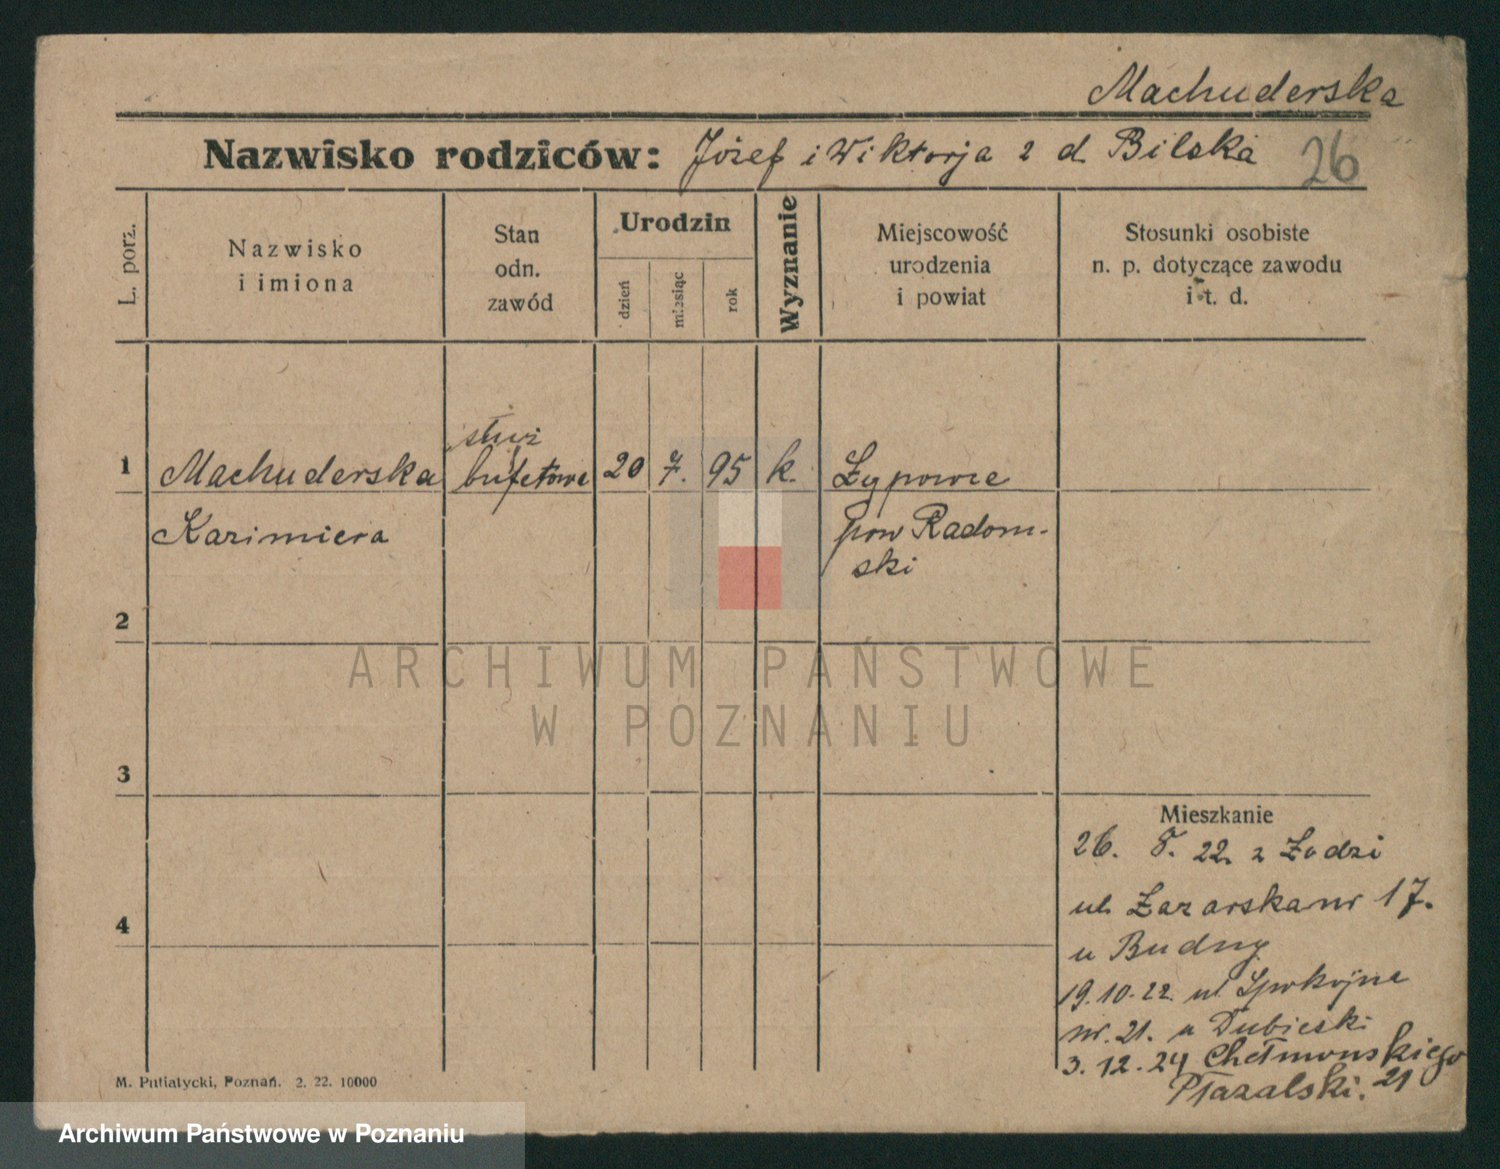 Machuderska
Nazwisko rodziców: Józef i Wiktorja z d Bilska 26
L. porz.
Nazwisko
i imiona
Stan
odn.
zawód
Urodzin
dzień
miesiąc
rok
Wyznanie
Miejscowość
urodzenia
i powiat
Stosunki osobiste
n. p. dotyczące zawodu
i t. d.
1 Machuderska służ bufetowa 20 7. 95 k. Łypowie
Kazimiera pow Radom-
ski
2
ARCHIWUM PAŃSTWOWE
W POZNANIU
3
4
Mieszkanie
26. 8. 22. z Łodzi
ul Łazarska nr 17.
u Budny
19.10.22. ul Spokojna
nr. 21. u Dubieski
3.12.24 Chełmonskiego
21
M. Putiatycki, Poznań. 2. 22. 10000
Archiwum Państwowe w Poznaniu